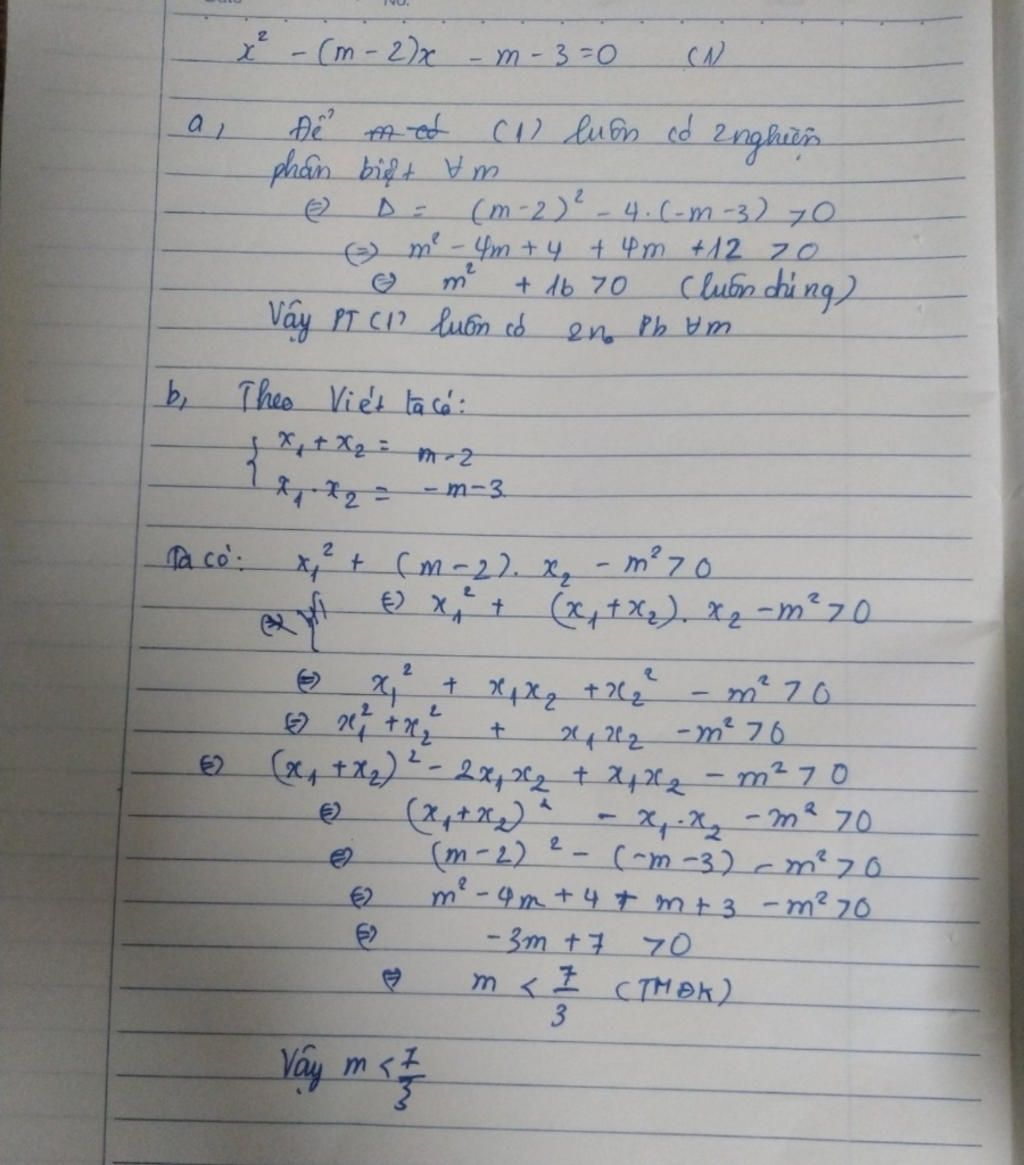 No.
x² - (m - 2)x - m - 3 = 0 (1)
a, Để m có (1) luôn có 2 nghiệm
phân biệt ∀m
⇔ Δ = (m-2)² - 4.(-m-3) > 0
⇔ m² - 4m + 4 + 4m + 12 > 0
⇔ m² + 16 > 0 (luôn đúng)
Vậy PT (1) luôn có 2n₀ Pb ∀m
b, Theo Viét ta có:
x₁ + x₂ = m - 2
x₁ . x₂ = -m-3
Ta có: x₁² + (m-2). x₂ - m² > 0
⇔ x₁² + (x₁+x₂). x₂ - m² > 0
⇔ x₁² + x₁x₂ + x₂² - m² > 0
⇔ x₁² + x₂² + x₁x₂ - m² > 0
⇔ (x₁ + x₂)² - 2x₁x₂ + x₁x₂ - m² > 0
⇔ (x₁+x₂)² - x₁.x₂ - m² > 0
⇔ (m-2)² - (-m-3) - m² > 0
⇔ m² - 4m + 4 + m + 3 - m² > 0
⇔ -3m + 7 > 0
⇔ m < 7/3 (TMĐK)
Vậy m < 7/3